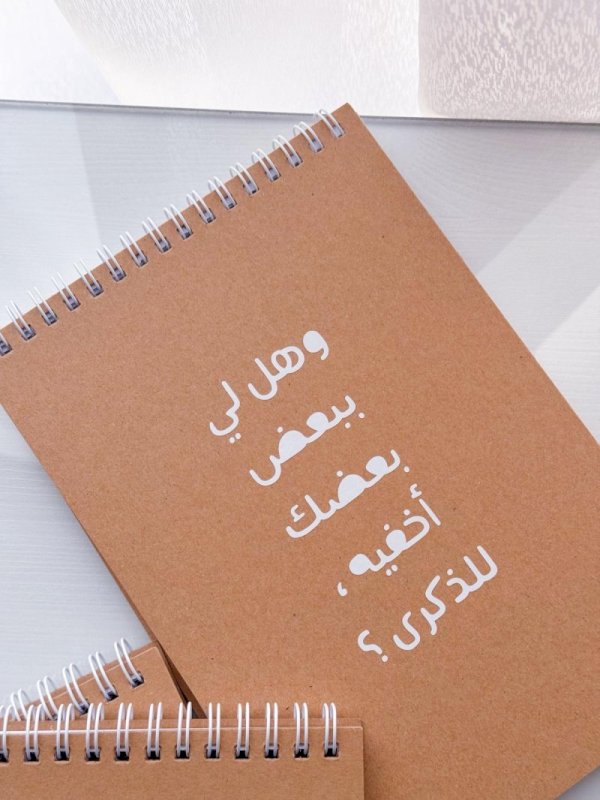 وهل لي
ببعض
بعضك
أخفيه،
للذكرى؟